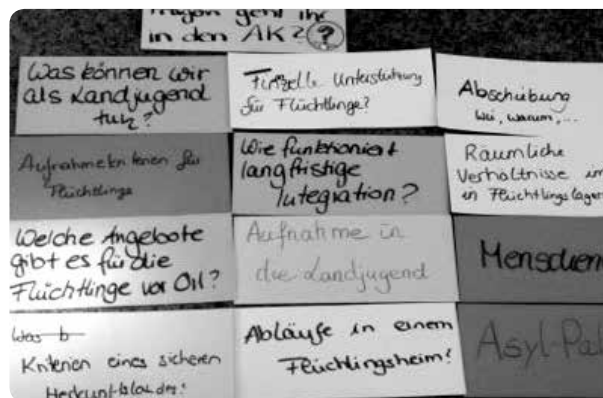 geht ihr
in den AK? ?
Was können wir
als Landjugend
tun?
Finzelle Unterstützung
für Flüchtlinge?
Abschiebung
wie, warum,...
Aufnahmekriterien für
Flüchtlinge
Wie funktioniert
langfristige
Integration?
Räumliche
Verhältnisse im
in Flüchtlingslager
Welche Angebote
gibt es für die
Flüchtlinge vor Ort?
Aufnahme in
die Landjugend
Menschen
Was b
Kriterien eines sicheren
Herkunftslandes?
Abläufe in einem
Flüchtlingsheim?
Asyl-Pa